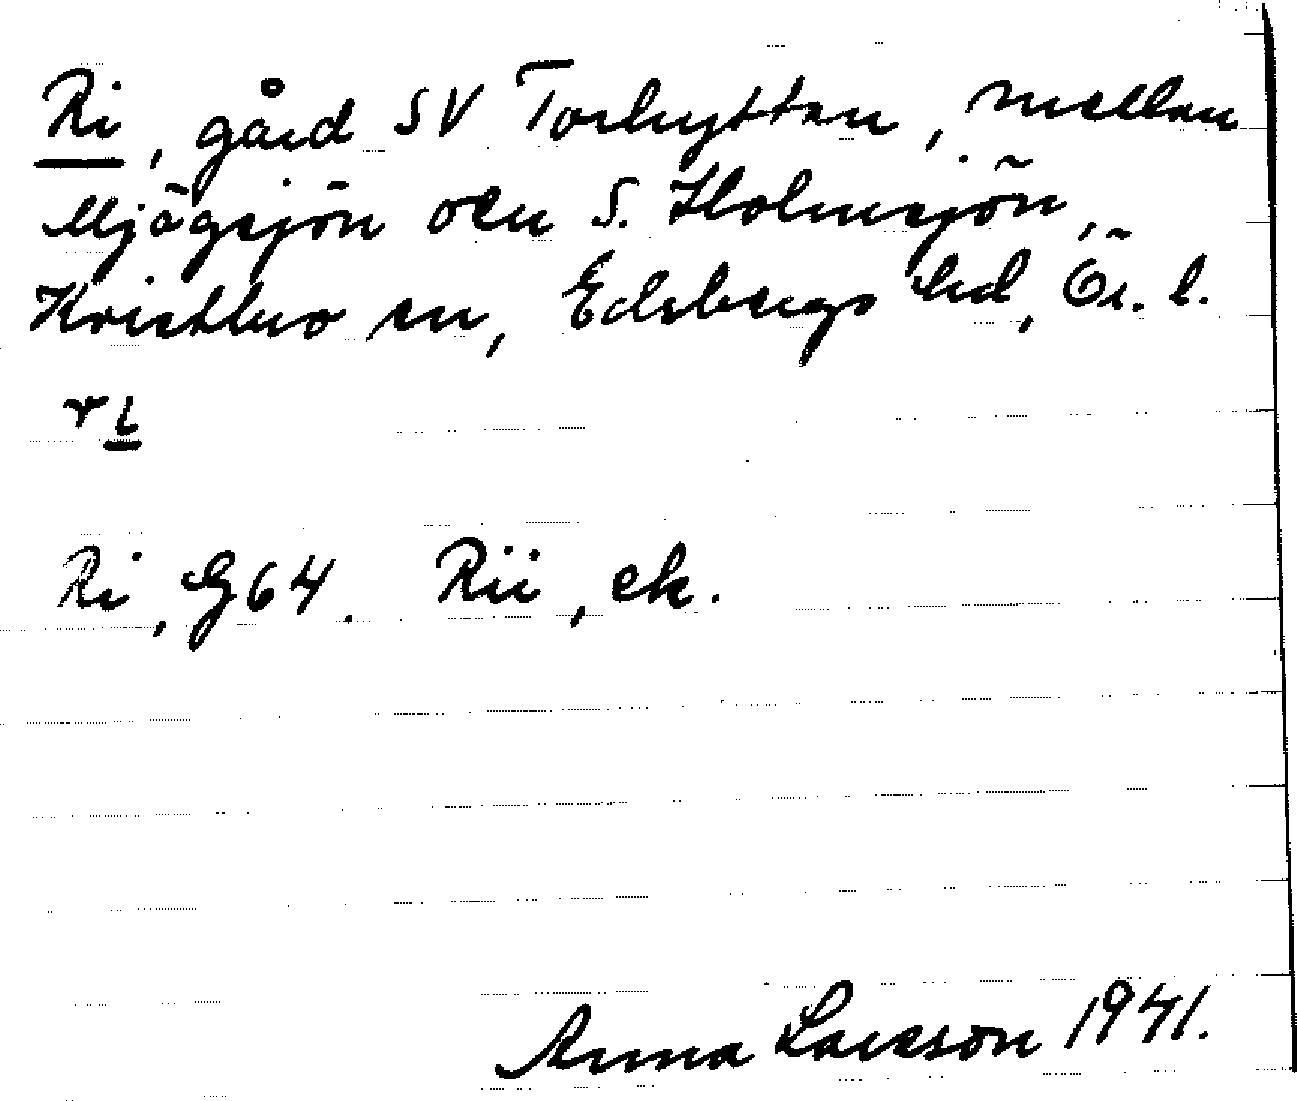 Ri, gård SV Torhyttan, mellan
Mjögsjön och S. Holmsjön,
Kvistbro sn, Edsbergs hd, Ör. l.
ri
Ri, G64. Rii, ek.
Anna Larsson 1941.